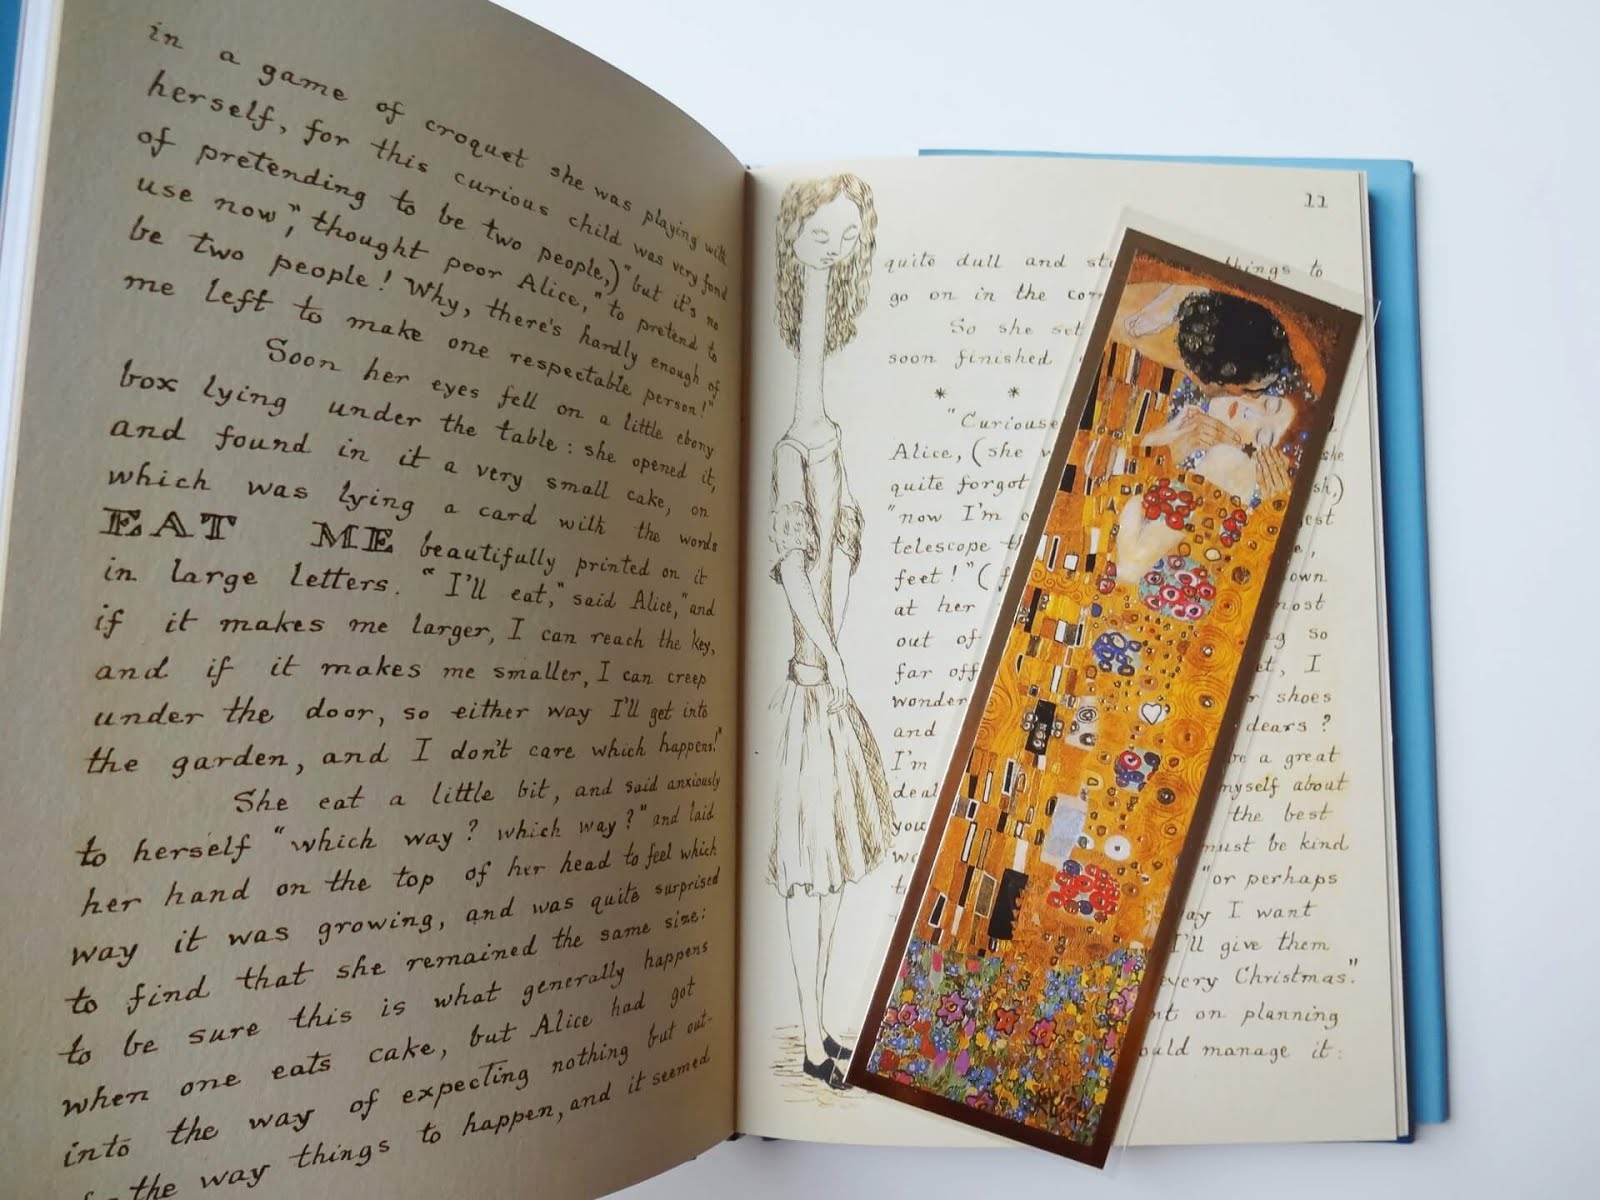 in a game of croquet she was playing with
herself, for this curious child was very fond
of pretending to be two people,) "but it's no
use now", thought poor Alice, "to pretend to
be two people! Why, there's hardly enough of
me left to make one respectable person!"
Soon her eyes fell on a little ebony
box lying under the table: she opened it,
and found in it a very small cake, on
which was lying a card with the words
EAT ME beautifully printed on it
in large letters. "I'll eat," said Alice, "and
if it makes me larger, I can reach the key,
and if it makes me smaller, I can creep
under the door, so either way I'll get into
the garden, and I don't care which happens!"
She eat a little bit, and said anxiously
to herself "which way? which way?" and laid
her hand on the top of her head to feel which
way it was growing, and was quite surprised
to find that she remained the same size:
to be sure this is what generally happens
when one eats cake, but Alice had got
into the way of expecting nothing but out-
the way things to happen, and it seemed
11
quite dull and things to
go on in the
So she set
soon finished
* *
"Curious
Alice, (she she
quite forgot
"now I'm
telescope
feet!" ( own
at her most
out of so
far off I
wonder shoes
and dears?
I'm a great
deal myself about
you the best
must be kind
"or perhaps
I want
I'll give them
every Christmas."
on planning
manage it: